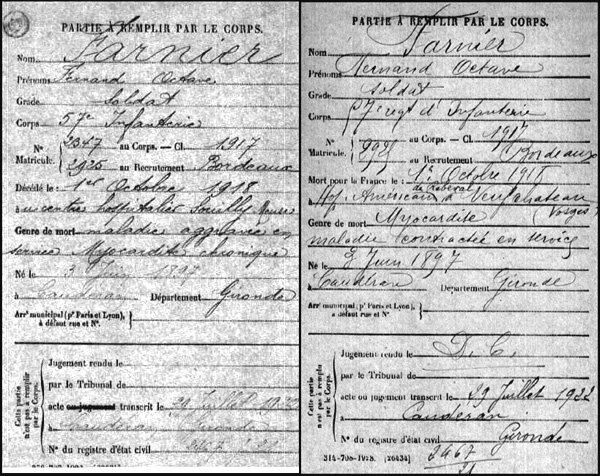 PARTIE À REMPLIR PAR LE CORPS.
Nom Farnier
Prénoms Fernand Octave
Grade Soldat
Corps 57e Infanterie
N° Matricule. 2347 au Corps. — Cl. 1917
2925 au Recrutement Bordeaux
Décédé le 1er Octobre 1918
à centre hospitalier Souilly Meuse
Genre de mort maladie aggravée en
service Myocardite chronique
Né le 3 Juin 1897
à Cauderan Département Gironde
Arr¹ municipal (pʳ Paris et Lyon),
à défaut rue et N°.
Cette partie
n'est pas à remplir
par le Corps.
Jugement rendu le
par le Tribunal de
acte ou jugement transcrit le 29 Juillet 1922
à Cauderan Gironde
N° du registre d'état civil 2467
PARTIE À REMPLIR PAR LE CORPS.
Nom Farnier
Prénoms Fernand Octave
Grade Soldat
Corps 57e regt d'Infanterie
N° Matricule. au Corps. — Cl. 1917
au Recrutement Bordeaux
Mort pour la France le 1er Octobre 1918
à Hop. Américain à Neufchateau
(Vosges)
Genre de mort Myocardite
maladie contractée en service
Né le 3 Juin 1897
à Cauderan Département Gironde
Arr¹ municipal (pʳ Paris et Lyon),
à défaut rue et N°.
Cette partie
n'est pas à remplir
par le Corps.
Jugement rendu le D. C.
par le Tribunal de
acte ou jugement transcrit le 29 Juillet 1922
à Cauderan
Gironde
N° du registre d'état civil 2467
21
314-708-1928. [26434]